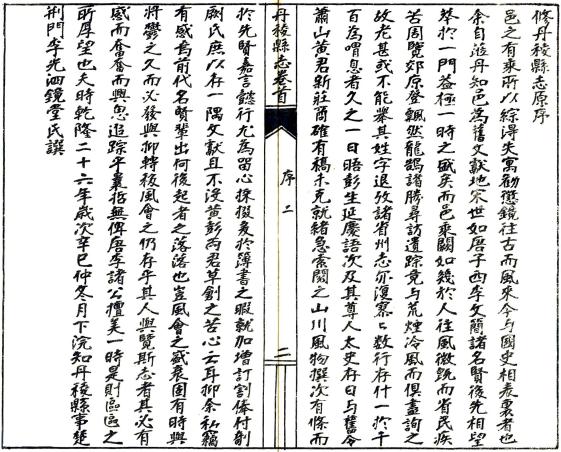 修丹稜縣志原序
邑之有乘所以綜得失寓勸懲鏡往古而風來今与國史相表裏者也
余自蒞丹知邑爲舊文獻地宋世如唐子西李文簡諸名賢後先相望
萃於一門益極一時之盛矣而邑乘闕如幾於人往風微旣而省民疾
苦周覽郊原登飄然龍鵠諸勝尋訪遺踪竟与荒煙冷風而俱盡詢之
故老甚或不能舉其姓字退攷諸省州志亦復寥々数行存什一於千
百爲喟息者久之一日晤彭生延慶語次及其尊人太史存日与舊令
蕭山黄君新莊商確有稿未克就緒急索閱之山川風物撰次有條而
丹稜縣志卷首
序二
二
於先賢嘉言懿行尤爲留心採掇爰於薄書之暇就加增訂割俸付剞
劂氏庶以存一隅文獻且不没黄彭两君草創之苦心云耳抑余私竊
有感焉前代名賢輩出何後起者之落落也豈風會之盛衰固有時與
將鬱之久而必發與抑轉移風會之仍存乎其人與覽斯志者其必有
感而奮奮而興思追踪乎曩哲無俾唐李諸公擅美一時是則區區之
所厚望也夫時乾隆二十六年歲次辛巳仲冬月下浣知丹稜縣事楚
荆門李光泗鏡堂氏譔